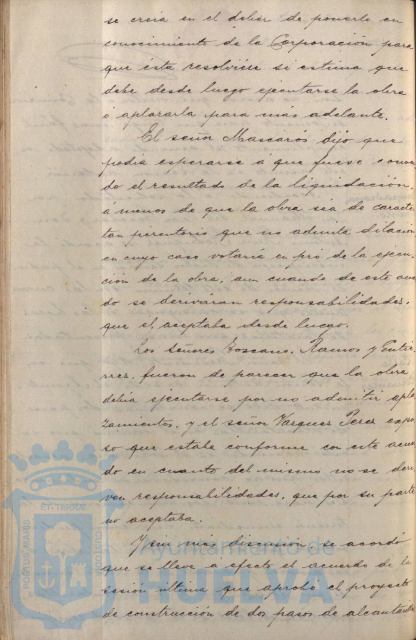 se creía en el deber de ponerlo en
conocimiento de la Corporación para
que ésta resolviese si estima que
debe desde luego ejecutarse la obra
ó aplazarla para más adelante.
El señor Mascarós dijo que
podía esperarse á que fuese conoci-
do el resultado de la liquidación,
á menos de que la obra sea de caracter
tan perentorio que no admita dilación
en cuyo caso votaría en pró de la ejecu-
ción de la obra, aun cuando de este acuer-
do se derivaran responsabilidades,
que él aceptaba desde luego.
Los señores Toscano, Ramos y Gutié-
rrez, fueron de parecer que la obra
debía ejecutarse por no admitir apla-
zamientos, y el señor Vazquez Perez expu-
so que estaba conforme con este acuer-
do en cuanto del mismo no se deri-
ven responsabilidades, que por su parte
no aceptaba.
Y sin más discusión se acordó
que se lleve a efecto el acuerdo de la
sesión última que aprobó el proyecto
de construcción de dos pasos de alcantarilla
Ayuntamiento de
HUELVA